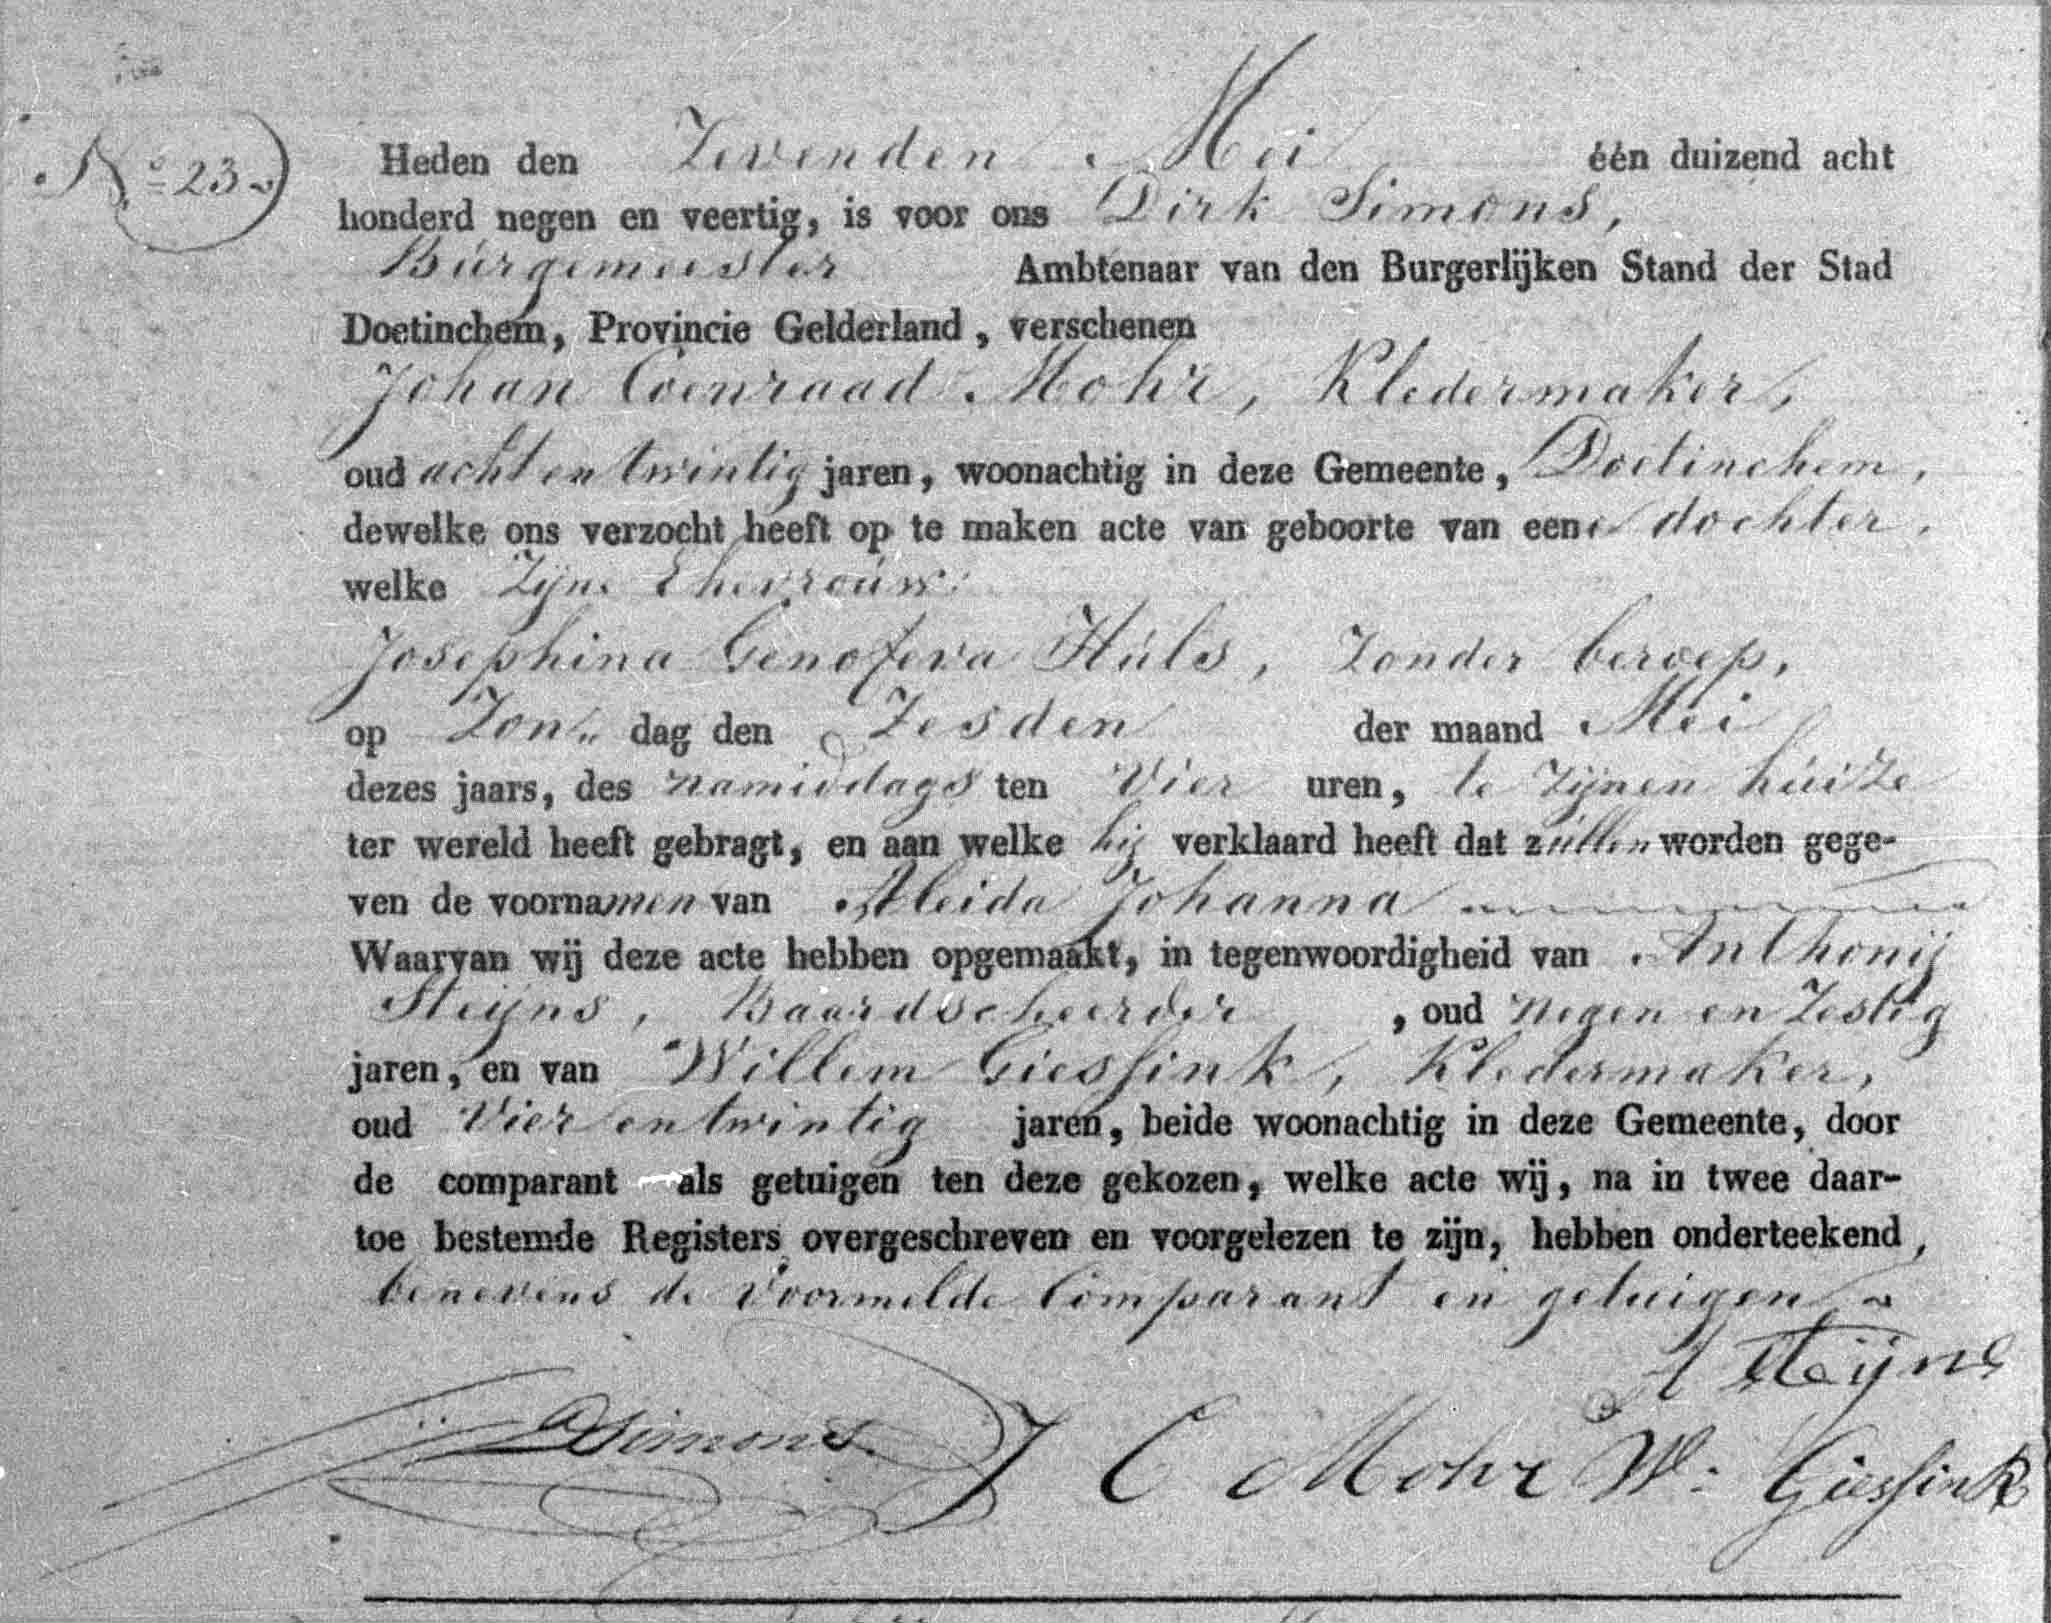 No 23.
Heden den Zevenden Mei één duizend acht
honderd negen en veertig, is voor ons Dirk Simons,
Burgemeester Ambtenaar van den Burgerlijken Stand der Stad
Doetinchem, Provincie Gelderland, verschenen
Johan Coenraad Mohr, Kledermaker,
oud acht en twintig jaren, woonachtig in deze Gemeente, Doetinchem,
dewelke ons verzocht heeft op te maken acte van geboorte van eene dochter,
welke Zijne Ehevrouw
Josephina Genofeva Hüls, Zonder beroep,
op Zon dag den Zesden der maand Mei
dezes jaars, des namiddags ten Vier uren, te Zijnen huize
ter wereld heeft gebragt, en aan welke hij verklaard heeft dat zullen worden gege-
ven de voornamen van Aleida Johanna
Waarvan wij deze acte hebben opgemaakt, in tegenwoordigheid van Anthonij
Steijns, Baardscheerder, oud negen en Zestig
jaren, en van Willem Giessink, Kledermaker,
oud Vier en twintig jaren, beide woonachtig in deze Gemeente, door
de comparant als getuigen ten deze gekozen, welke acte wij, na in twee daar-
toe bestemde Registers overgeschreven en voorgelezen te zijn, hebben onderteekend,
benevens de Voormelde Comparant en getuigen
A Steijns
DSimons J C Mohr W: Giessink